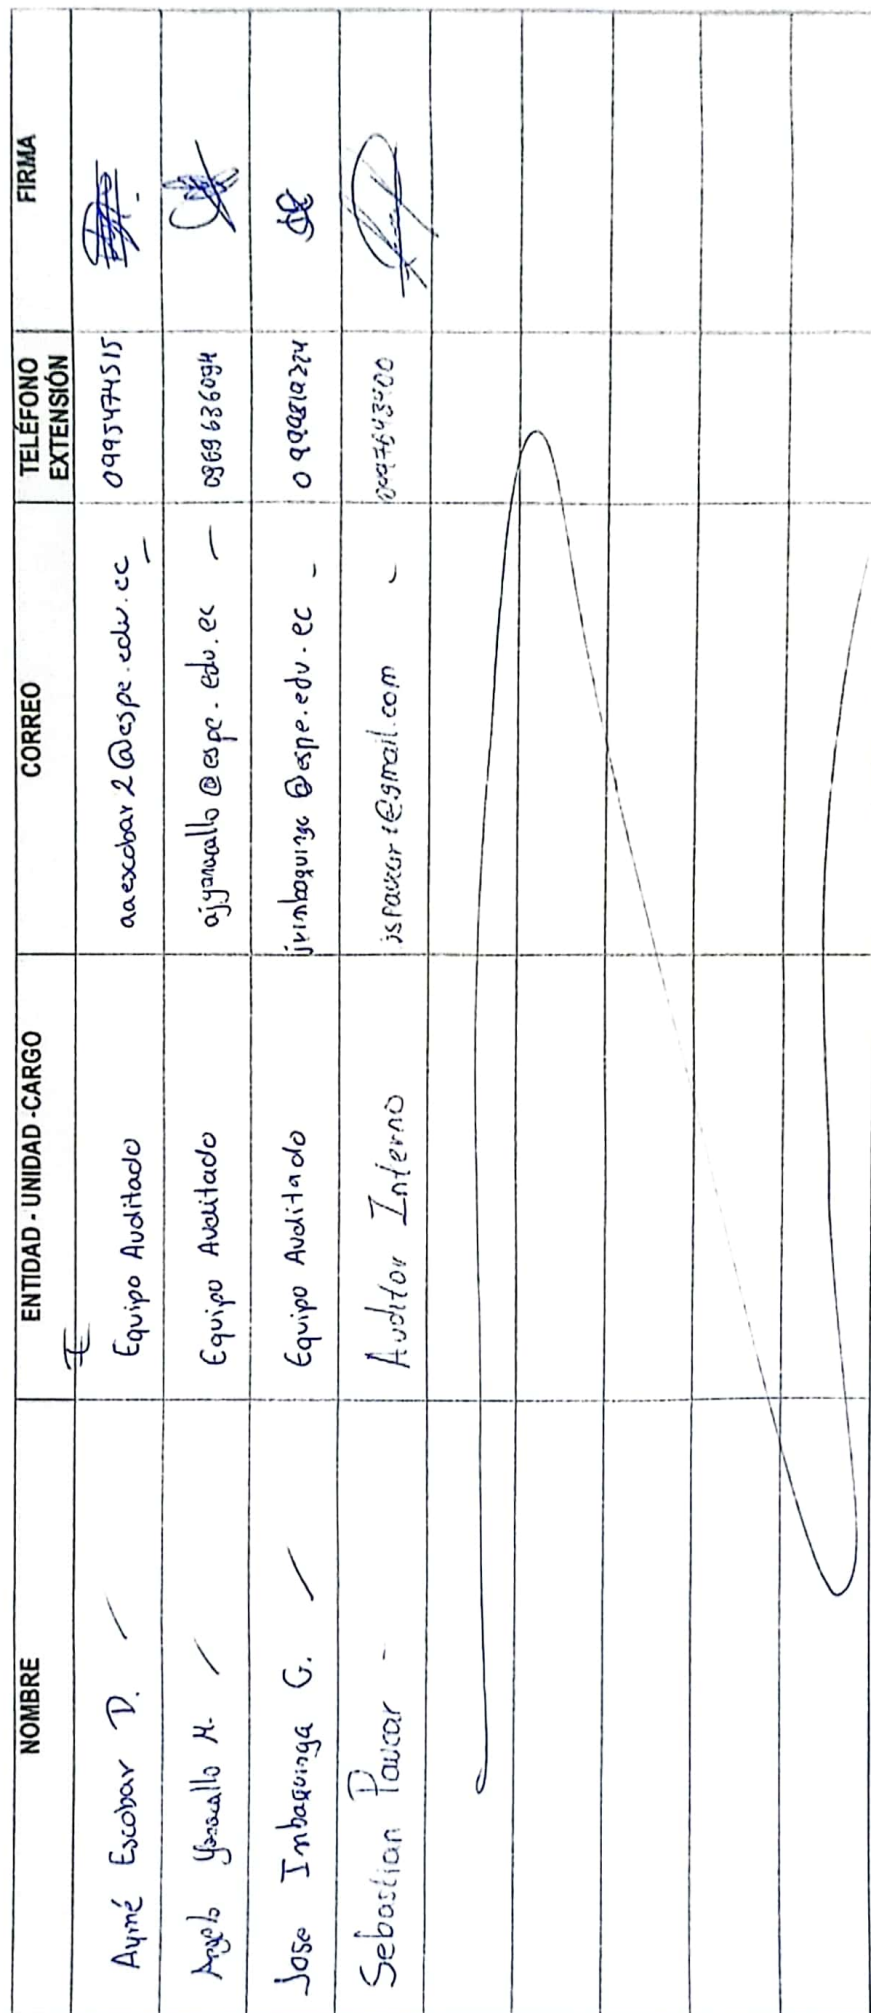 NOMBRE ENTIDAD - UNIDAD -CARGO CORREO TELÉFONO EXTENSIÓN FIRMA
Aymé Escobar D. Equipo Auditado aaescobar2@espe.edu.ec 0995474515
Angelo Yanacallo M. Equipo Auditado ajyanacallo@espe.edu.ec 0969636094
Jose Inbaquinga G. Equipo Auditado @espe.edu.ec
Sebastian Paucar Auditor Interno